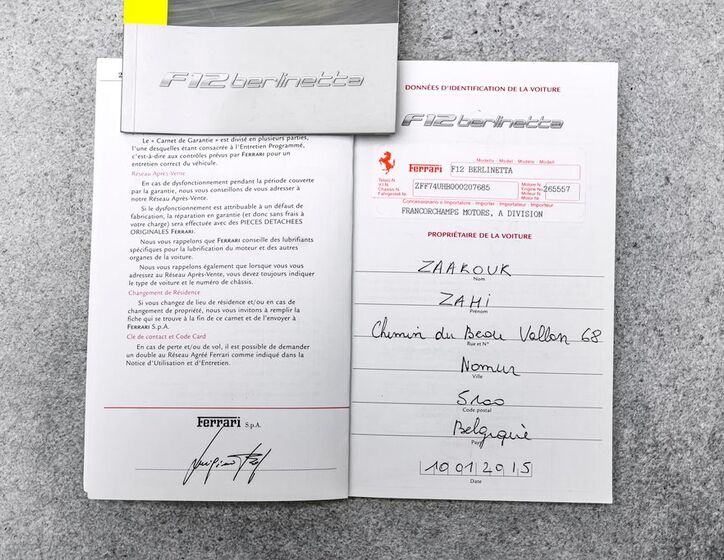 F12berlinetta
2
Le « Carnet de Garantie » est divisé en plusieurs parties,
l'une desquelles étant consacrée à l'Entretien Programmé,
c'est-à-dire aux contrôles prévus par FERRARI pour un
entretien correct du véhicule.
Réseau Après-Vente
En cas de dysfonctionnement pendant la période couverte
par la garantie, nous vous conseillons de vous adresser à
notre Réseau Après-Vente.
Si le dysfonctionnement est attribuable à un défaut de
fabrication, la réparation en garantie (et donc sans frais à
votre charge) sera effectuée avec des PIECES DETACHEES
ORIGINALES FERRARI.
Nous vous rappelons que FERRARI conseille des lubrifiants
spécifiques pour la lubrification du moteur et des autres
organes de la voiture.
Nous vous rappelons également que lorsque vous vous
adressez au Réseau Après-Vente, vous devez toujours indiquer
le type de voiture et le numéro de châssis.
Changement de Résidence
Si vous changez de lieu de résidence et/ou en cas de
changement de propriété, nous vous invitons à remplir la
fiche qui se trouve à la fin de ce carnet et de l'envoyer à
FERRARI S.p.A.
Clé de contact et Code Card
En cas de perte et/ou de vol, il est possible de demander
un double au Réseau Agréé Ferrari comme indiqué dans la
Notice d'Utilisation et d'Entretien.
Ferrari S.p.A.
DONNÉES D'IDENTIFICATION DE LA VOITURE
F12berlinetta
Modello - Model - Modèle - Modell
Ferrari F12 BERLINETTA
Telaio N.
V.I.N.
Chassis N.
Fahrgestell Nr.
ZFF74UHB000207685
Motore N.
Engine No
Moteur N.
Motor Nr.
265557
Concessionario o Importatore - Importer - Importateur - Importeur
FRANCORCHAMPS MOTORS, A DIVISION
PROPRIÉTAIRE DE LA VOITURE
ZAAROUR
Nom
ZAHI
Prénom
Chemin du Beau Vallon 68
Rue et N°
Namur
Ville
5100
Code postal
Belgique
Pays
10012015
Date